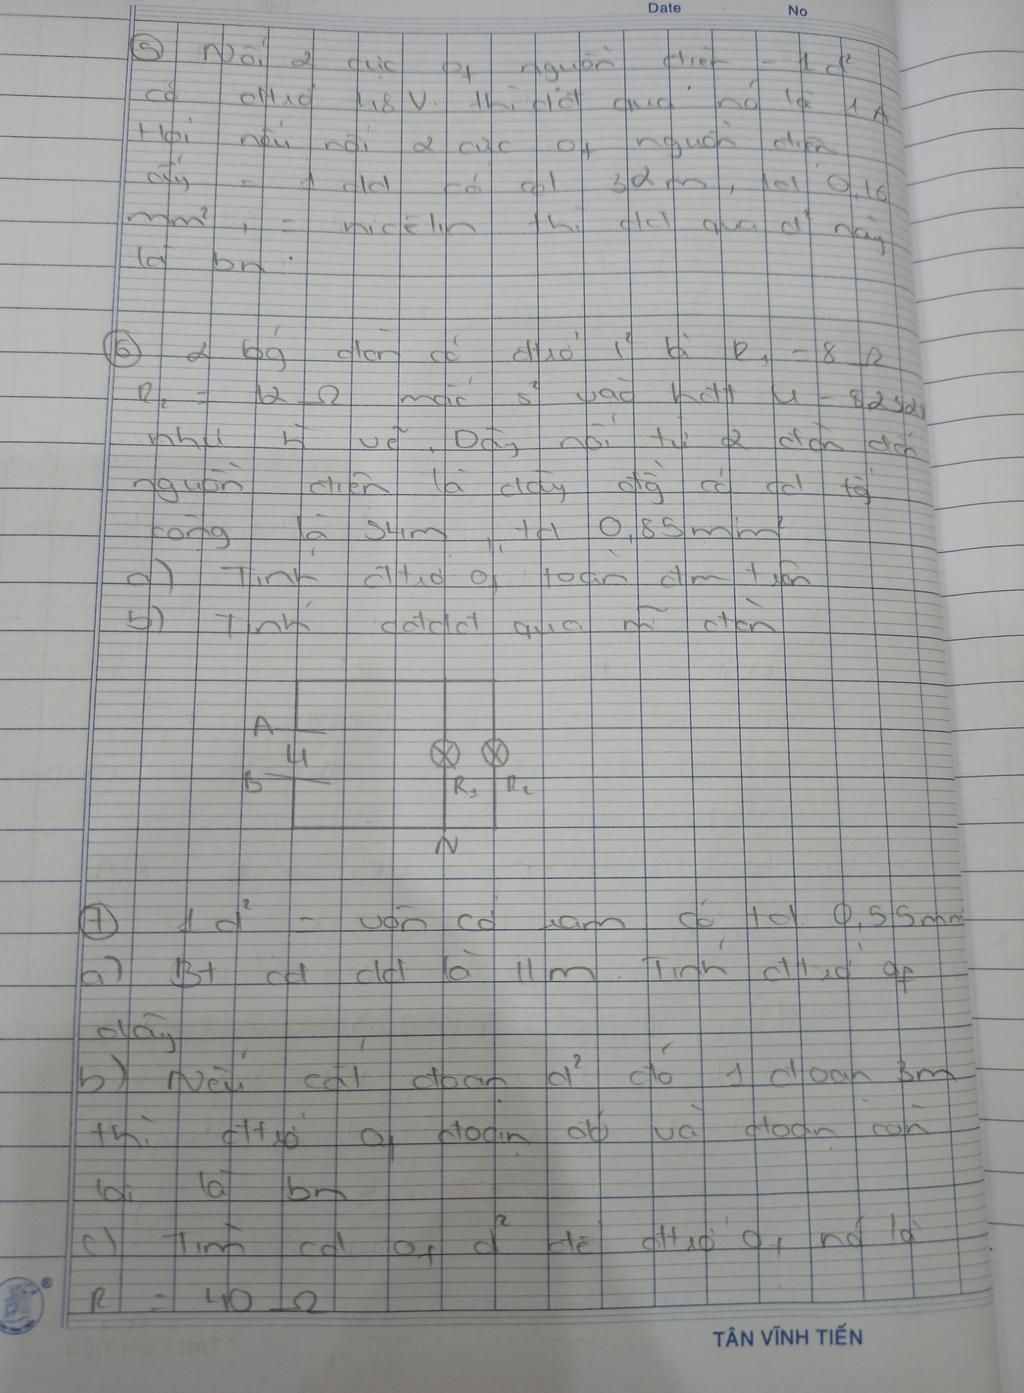 Date No
⑤ Nối 2 cực of nguồn điện = 1 d²
có đttrở 48 V. thì dđ qua nó là 1 A
Hỏi nếu nối 2 cực of nguồn điện
ấy = 1 dd có cd 32 m, td 0,16
mm², = nicêlin thì dđ qua d² này
là bn.
⑥ 2 bg đèn có đttrở l² là R₁ = 8 Ω
R₂ = 12 Ω mắc s² vào hđt U =
như h vẽ. Dây nối từ 2 đèn đến
nguồn điện là dây đg có cd tg
cộng là 54m, td 0,85 mm²
a) Tính đttrở of toàn đm trên
b) Tính cđdđ qua m đèn
A
U
B R₁ R₂
N
⑦ 1 d² = vôn có ram có td 0,55mm
a) Bt cd dd là 11m. Tính đttrở of
dây
b) Nếu cắt đoạn d² đó 1 đoạn 3m
thì đttrở of đoạn ab và đoạn còn
lại là bn
c) Tính cd of d² để đttrở of nó là
R = 40 Ω
TÂN VĨNH TIẾN